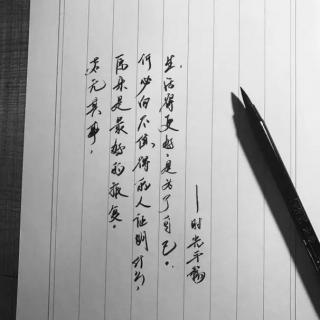 若无其事，
原来是最好的报复。
何必向不值得的人证明什么，
生活得更好，是为了自己。
——时光